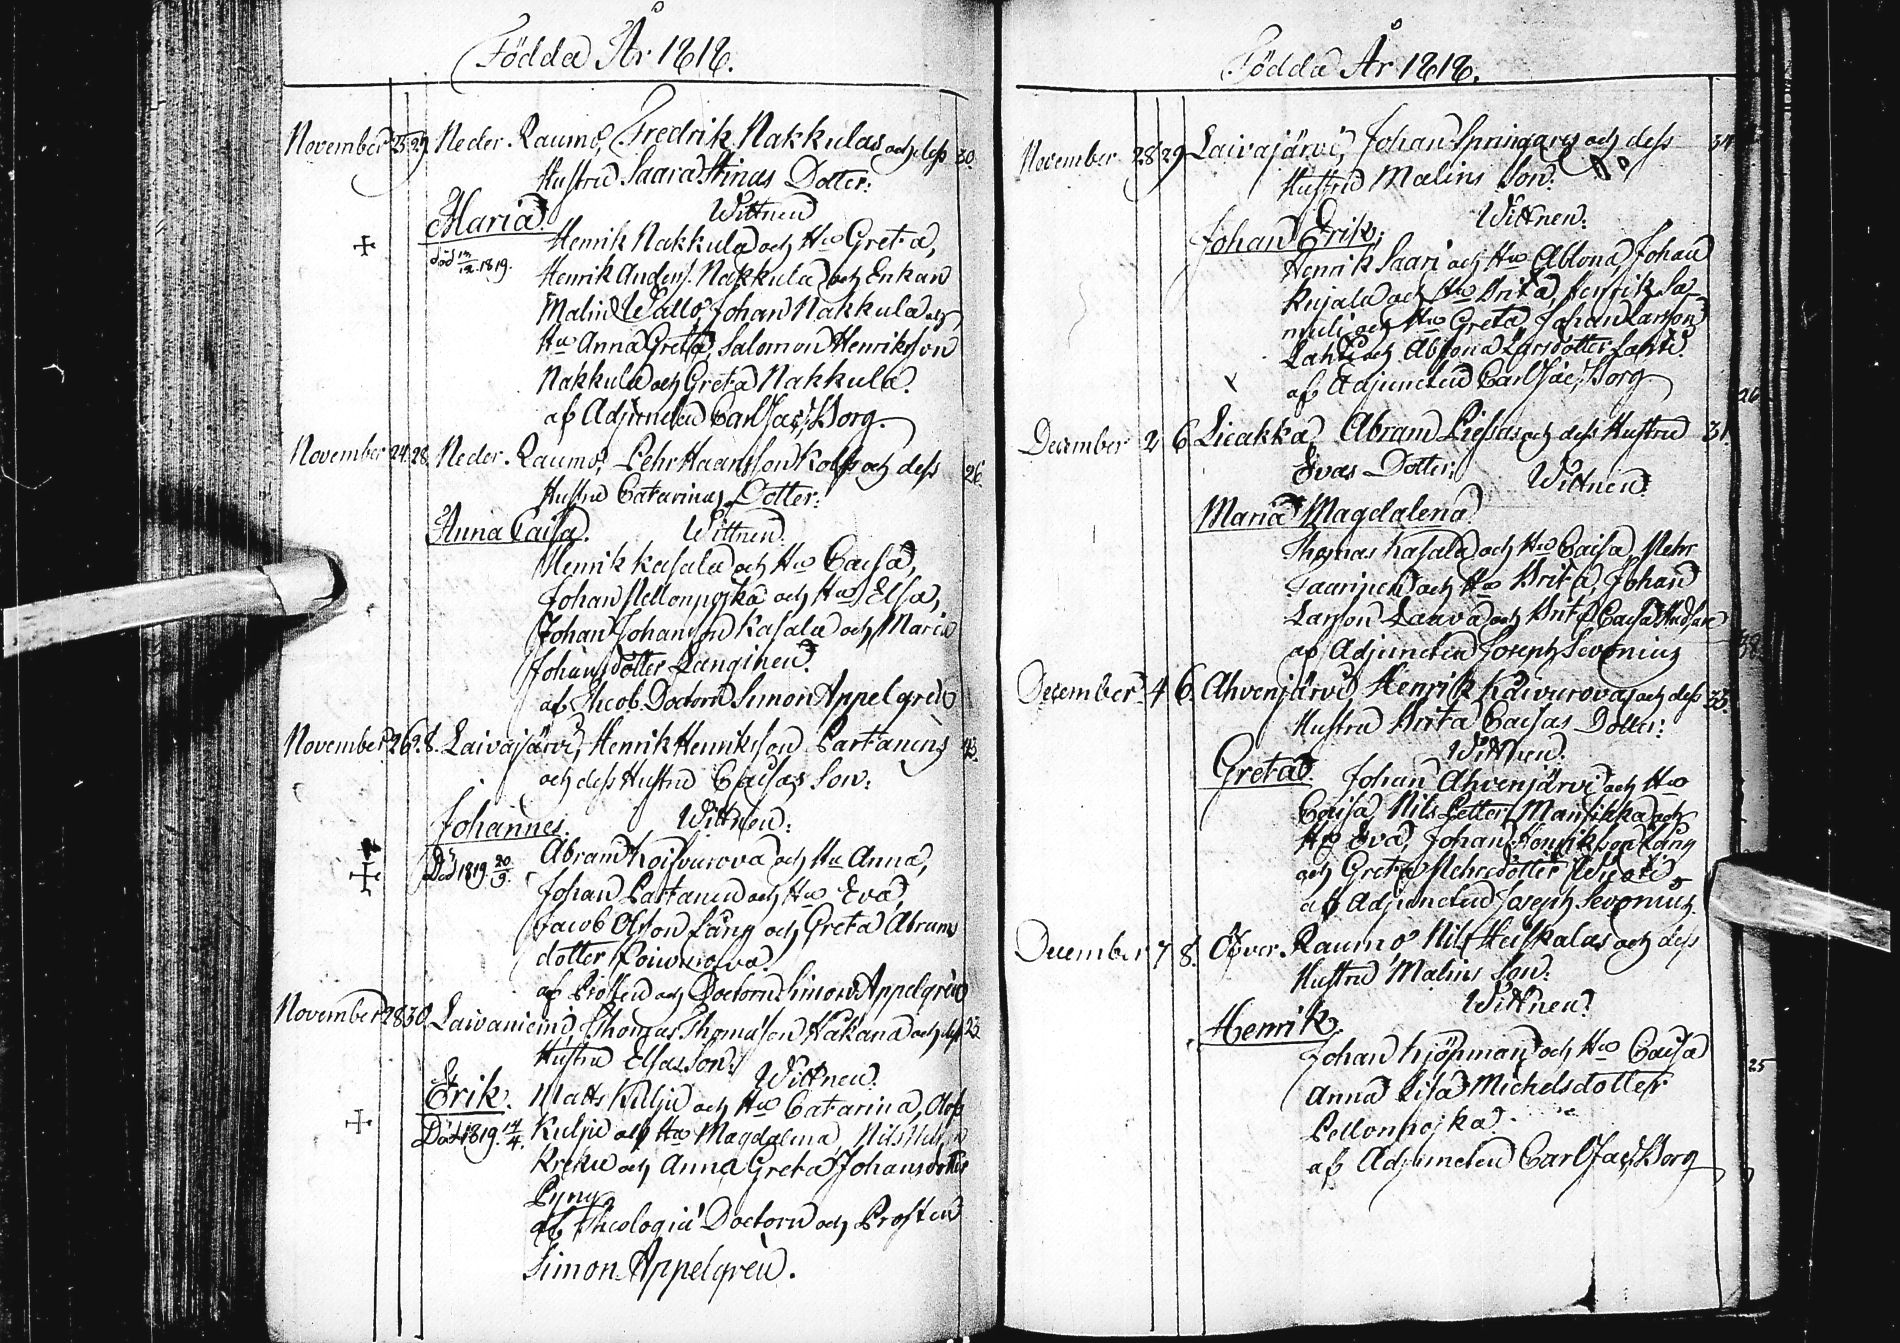 Födda År 1818.
November 25 29 Neder. Raumo, Fredrik Nakkulas och dess 30.
Hustru Saara Stinas Dotter:
Maria. Wittnen
död 13/12 1819. Henrik Nakkula och Hu Greta,
Henrik Anders. Nakkula och Enkan
Malin Wallo, Johan Nakkula och
Hu Anna Greta, Salomon Henriksson
Nakkula och Greta Nakkula.
af Adjuncten Carl Jac. Borg.
November 24. 28. Neder. Raumo, Pehr Hansson Kolps och dess 26.
Hustru Catarinas Dotter:
Anna Caisa. Wittnen.
Henrik Kasala och Hu Caisa,
Johan Pellonpojka och Hu Elsa,
Johan Johansson Kasala och Maria
Johansdotter Länginen.
af Theol. Doctorn Simon Appelgren
November. 26 28. Laivajärvi, Henrik Henriksson Partanens 43.
och dess Hustru Caisas Son:
Johannes. Wittnen:
Död 1819. 20/9. Abram Koivurova och Hu Anna,
Johan Partanen och Hu Eva,
Jacob Olsson Lång och Greta Abrams
dotter Koivurova.
af Prosten och Doctorn Simon Appelgren
November 28 30. Laivaniemi, Thomas Thomasson Hakana och dess 23
Hustru Elsas Son:
Erik. Wittnen.
Matts Kuljo och Hu Catarina, Olof
Död 1819. 14/4. Kuljo och Hu Magdalena, Nils
Kreku och Anna Greta Johansdotter
Pyny
af Theologiæ Doctorn och Prosten
Simon Appelgren.
Födda År 1818.
November. 28 29 Laivajärvi, Johan Springares och dess 34
Hustru Malins Son:
Johan Erik. Wittnen.
Henrik Saari och Hu Ablona, Johan
Kujala och Hu Brita, Henrik Sa-
muli och Hu Greta, Johan Larsson
Lahti och Ablona Larsdotter Lahti.
af Adjuncten Carl Jac. Borg
26
December 2 6 Liedakka, Abram Piessas och dess Hustru 31.
Evas Dotter: Wittnen.
Maria Magdalena
Thomas Kasala och Hu Caisa, Pehr
Taaripen och Hu Brita, Johan
Larsson Laava och Brita Caisa
af Adjuncten Joseph Sevonius
December 4 6. Ahvenjärvi Henrik Koivurovas och dess 33.
Hustru Brita Caisas Dotter:
Wittnen.
Greta. Johan Ahvenjärvi och Hu
Caisa, Nils Petter Mansikka och
Hu Eva, Johan Henriksson Lång
och Greta Pehrsdotter
af Adjuncten Joseph Sevonius
December 7 8. Öfver. Raumo Nils Heiskalas och dess
Hustru Malins Son:
Wittnen.
Henrik.
Johan Kjöpman och Hu Caisa
25
Anna Lisa Michelsdotter
Pellonpojka.
af Adjuncten Carl Jac. Borg